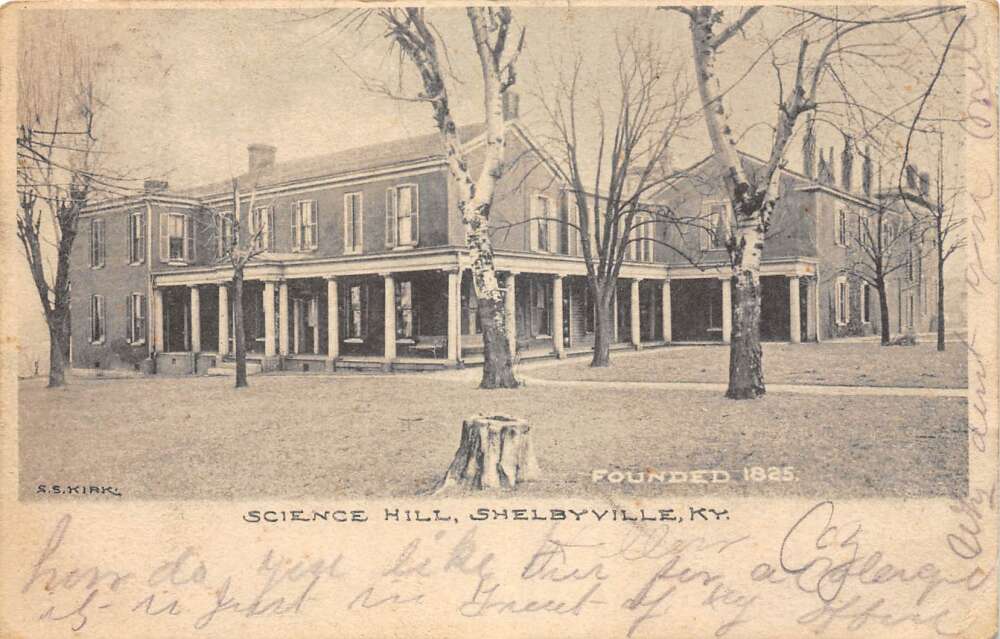 FOUNDED 1825.
S.S. KIRK.
SCIENCE HILL, SHELBYVILLE, KY.
how do you like this for a
it is just in front of my office
Why dont you